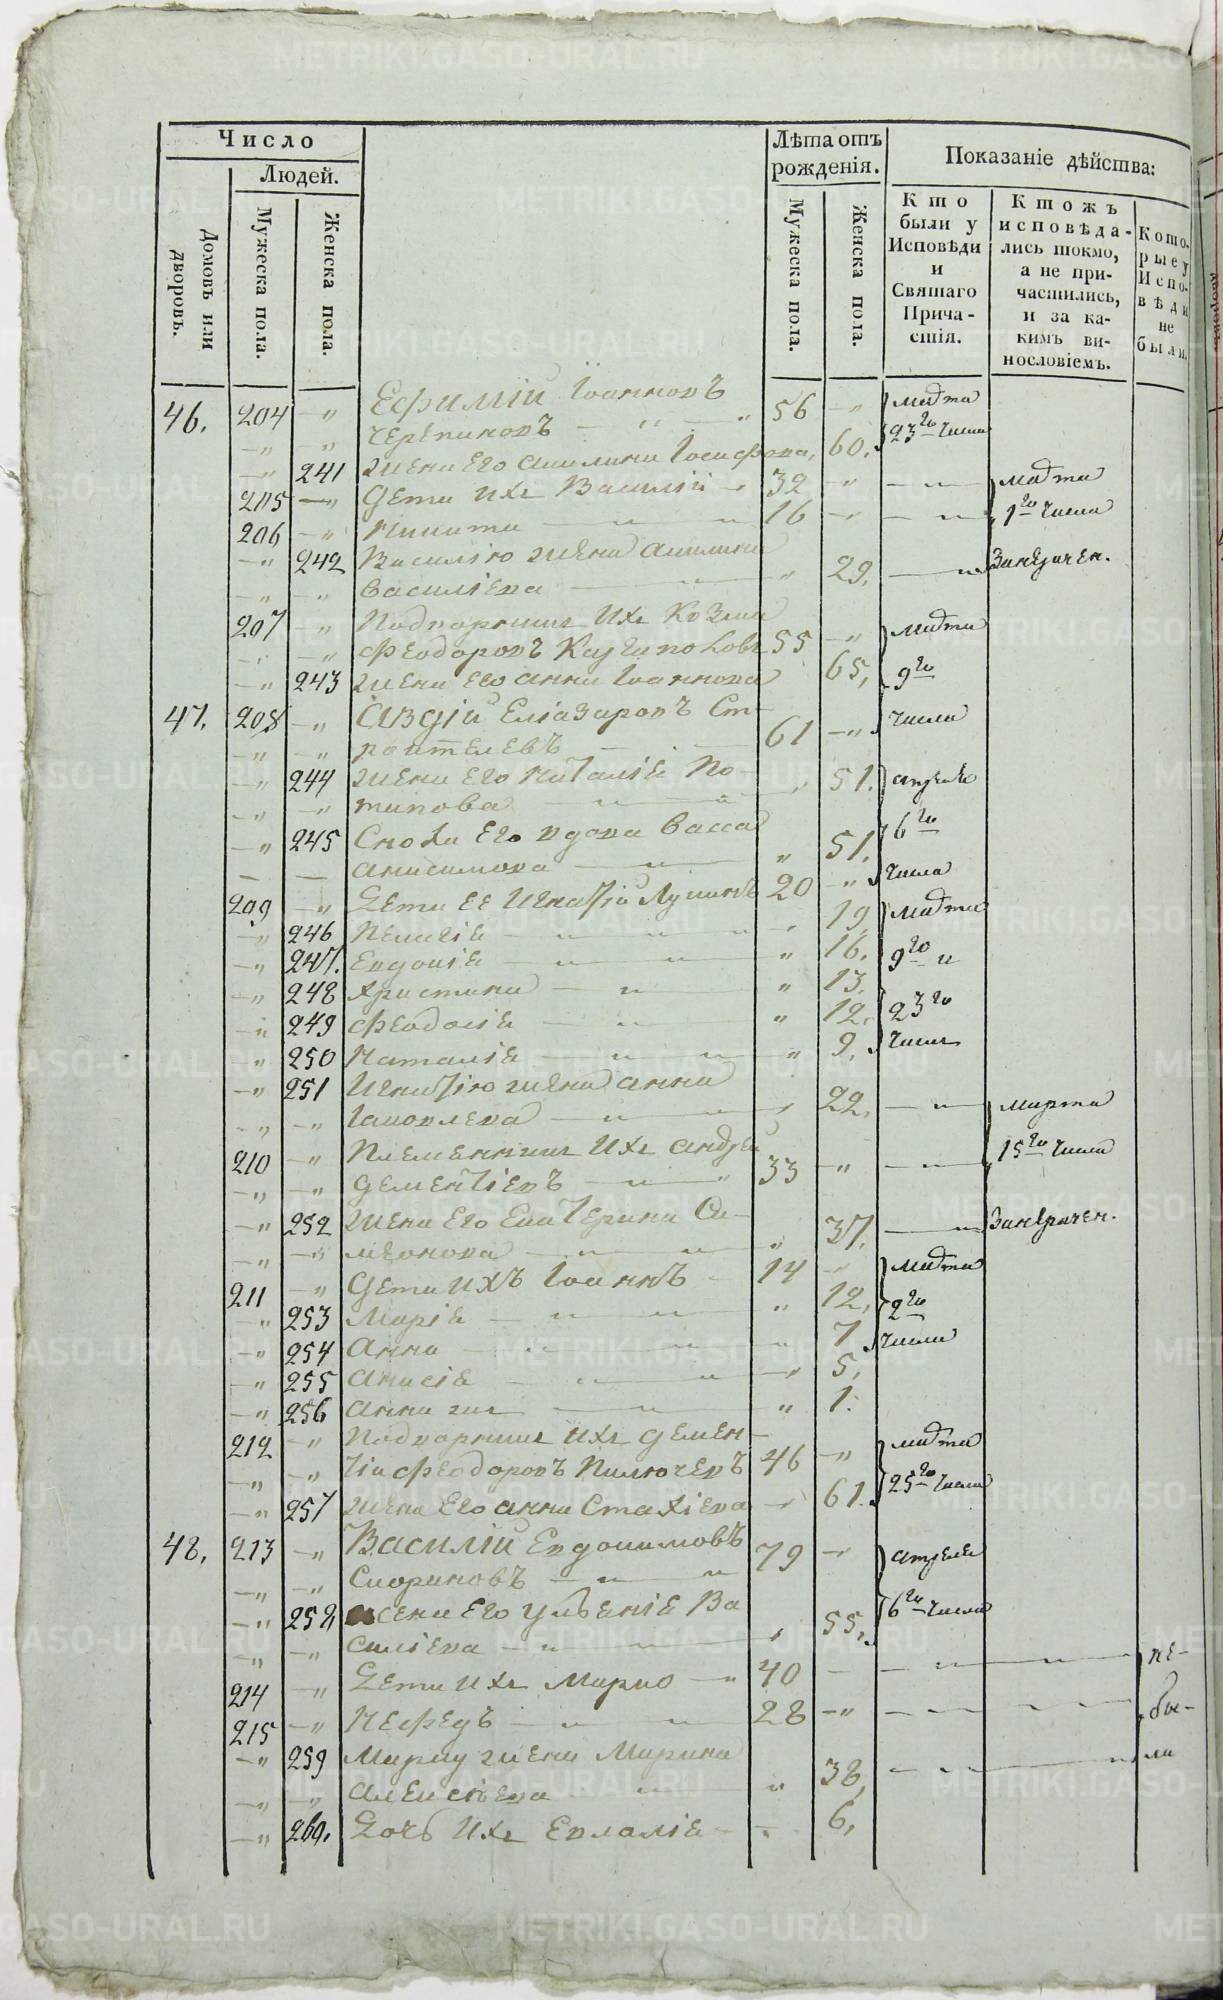 Число
Людей.
Домовъ или дворовъ.
Мужеска пола.
Женска пола.
Лѣта отъ рожденія.
Мужеска пола.
Женска пола.
Показаніе дѣйства:
Кто были у Исповѣди и Святаго Причастія.
Ктожъ исповѣдались токмо, а не причастились, и за какимъ винословіемъ.
Которые у Исповѣди не были.
46. 204 —„ Ефимій Іоанновъ 56 —„ марта
—„ „ Черепановъ — „ — „ 23го числа
—„ 241 жена его Акилина Іосифова, 60.
205 —„ дети ихъ Василій —„ 32 —„ — „ марта
206 —„ Никита — „ — „ 16 —„ — „ 1го числа
—„ 242 Василію жена Акилина
—„ „ Василіева — „ — „ 29. — „
207 —„ Подворникъ ихъ Козма марта
—„ —„ Феодоровъ 55 —„
—„ 243 жена его Анна Іоаннова 65, 9го
47. 208 —„ Авдій Еліазаровъ Ст- числа
—„ „ роителевъ — 61 —„
—„ 244 жена его Наталіѣ По- „ 51. апреле
—„ —„ тапова — „ — „
—„ 245 Сноха его вдова Васса 51, 6го
— — Анисимова — „ — „ числа
209 —„ Дети ее Игнатій Лукинъ 20 —„
—„ 246 Пелагіѣ — „ — „ 19, марта
—„ 247. Евдокіѣ — „ — „ 16, 9го и
—„ 248 Христина — „ — „ 13,
—„ 249 Феодосіѣ — „ — „ 12, 23го
„ 250 Наталіѣ — „ — „ 9, числ
—„ 251 Игнатію жена Анна
—„ —„ Іаковлева — „ — „ 22, — „ марта
210 —„ Племянникъ ихъ Андрей 15го числа
—„ —„ Дементіевъ — „ — „ 33 —„ — „
—„ 252 жена его Екатерина Си-
—„ —„ меонова — „ — „ 37, — „
211 —„ Дети ихъ Іоаннъ — 14 —„ марта
—„ 253 Маріѣ — „ — „ 12, 9го
—„ 254 Анна — „ — „ 7. числа
—„ 255 Анисіѣ — „ — „ 5,
—„ 256 Анна жъ — „ — „ 1.
212 —„ Подворникъ ихъ Демен- марта
—„ „ тій Феодоровъ 46 —„
—„ 257 жена его Анна Стахіева 61. 25го числа
48, 213 —„ Василій Евдокимовъ 79 —„ апреле
—„ „ — „ — „
—„ 258, жена его Ульяніѣ Ва 6го числа
—„ —„ силіева — „ — „ 55,
214 —„ Дети ихъ Марко —„ 40 — — „ не-
215 —„ Нефедъ — „ — „ 28 —„ — бы-
—„ 259 Марку жена Марина ли
—„ „ Алексіева „ — „ 38,
—„ 260, Дочь ихъ Евлаліѣ — 6,
METRIKI.GASO-URAL.RU